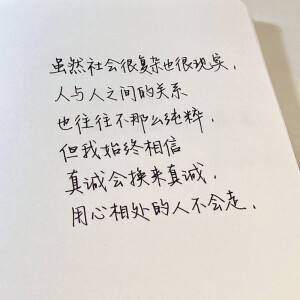 虽然社会很复杂也很现实，
人与人之间的关系
也往往不那么纯粹，
但我始终相信
真诚会换来真诚，
用心相处的人不会走。